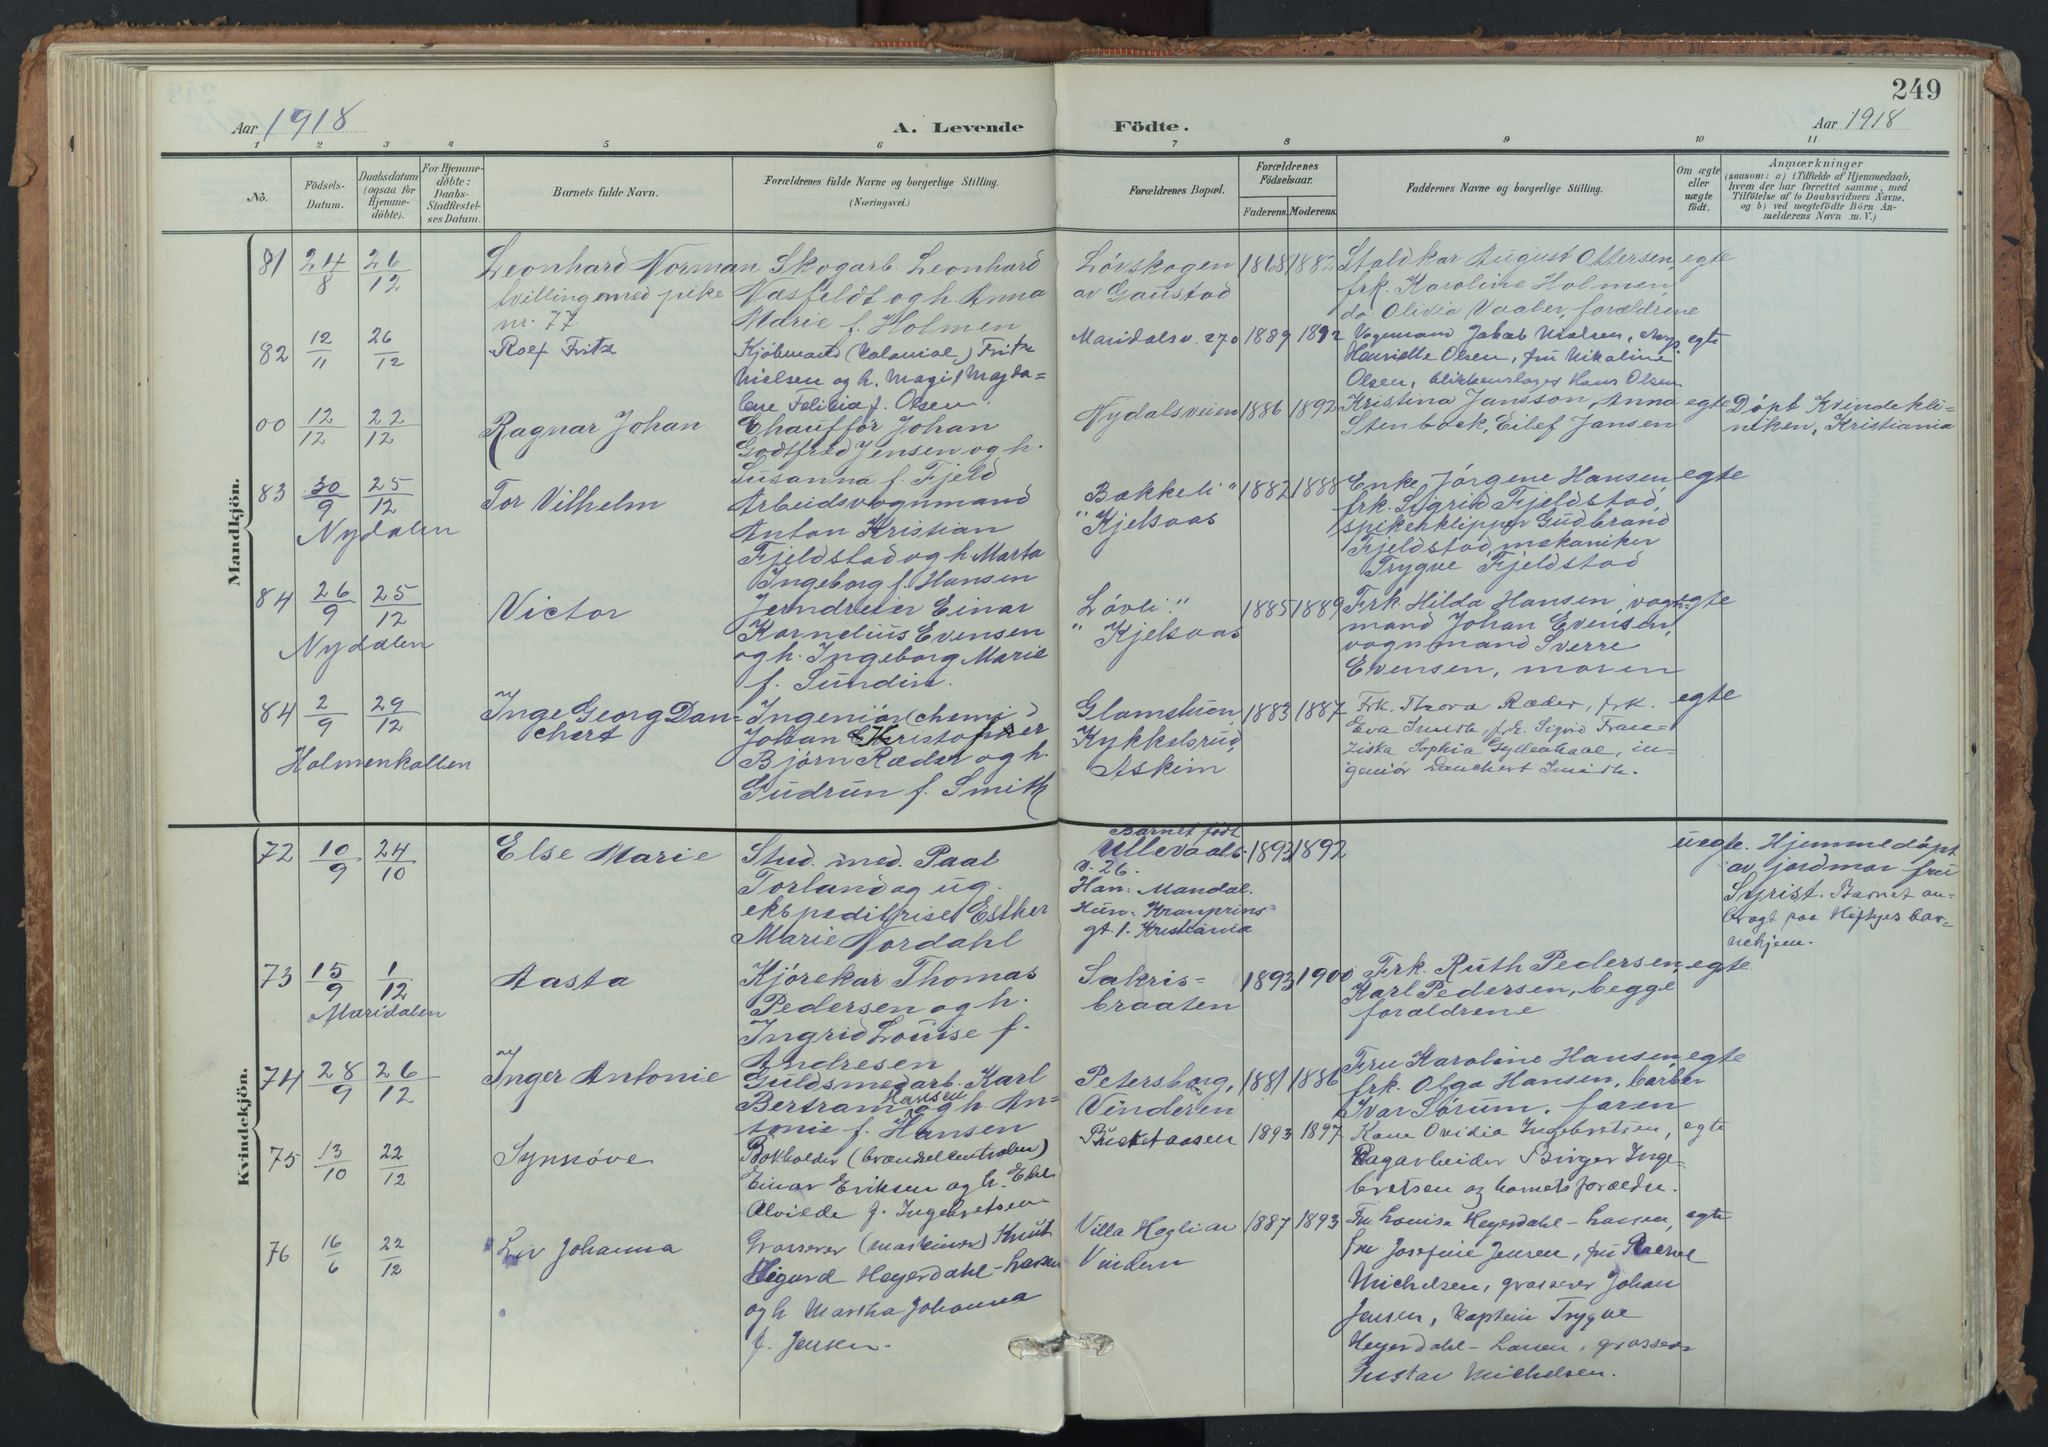 249
Aar 1918
A. Levende
Födte.
Aar 1918
1 2 3 4 5 6 7 8 9 10 11
No.
Födsels-Datum.
Daabsdatum (ogsaa for Hjemmedöbte).
For Hjemmedöbte: Daabs-Stadfæstelses Datum.
Barnets fulde Navn.
Forældrenes fulde Navne og borgerlige Stilling.
(Næringsvei.)
Forældrenes Bopæl.
Forældrenes Födselsaar.
Faderens. Moderens.
Faddernes Navne og borgerlige Stilling.
Om ægte eller uægte født.
Anmærkninger
(saasom: a) i Tilfælde af Hjemmedaab,
hvem der har forrettet samme, med
Tilföielse af to Daabsvidners Navne,
og b) ved uægtefödte Börn An-
melderens Navn m. V.)
Mandkjön.
81 24/8 26/12
Leonhard Norman
tvilling med pike
nr. 77
Skogarb. Leonhard
Næsfeldt og h. Anna
Marie f. Holmen
Lövskogen
av Gaustad
1868 1882
Staldkar August Ottersen,
frk. Karoline Holmen,
do. Olivia Vaaler, forældrene
egte
82 12/11 26/12
Rolf Fritz
Kjöbmand (Kolonial) Fritz
Nielsen og h. Magi Magda-
lene Felicia f. Olsen.
Maridalsv. 270
1889 1892
Vognmand Jakob Nielsen,
Henriette Olsen, fru Nikoline
Olsen, blikkenslager Hans Olsen
egte
00 12/12 22/12
Ragnar Johan
Chaufför Johan
Godtfred Jensen og h.
Susanna f. Fjeld
Nydalsveien
1886 1892
Kristina Jansson, Anna
Stenbock, Eilef Jansen
egte
Döpt Kvindekli-
niken, Kristiania
83 30/9 25/12
Nydalen
Tor Vilhelm
Arbeidsvognmand
Anton Kristian
Fjeldstad og h. Marta
Ingeborg f. Hansen
Bakkeli"
" Kjelsaas
1882 1888
Enke Jörgene Hansen
frk. Sigrid Fjeldstad,
spikerklipper Gudbrand
Fjeldstad, mekaniker
Trygve Fjeldstad
egte
84 26/9 25/12
Nydalen
Victor
Jerndreier Einar
Kornelius Evensen
og h. Ingeborg Marie
f. Sundin.
Lövli."
" Kjelsaas
1885 1889
Frk. Hilda Hansen, vogn-
mand Johan Evensen,
vognmand Sverre
Evensen, moren
egte
84 2/9 29/12
Holmenkollen
Inge Georg Dan-
chert
Ingeniör (chemi)
Johan Christopher
Björn Ræder og h.
Gudrun f. Smith
Glomstuen,
Kykkelsrud,
Askim
1883 1887
Frk. Thora Ræder, frk.
Eva Smith, frk. Sigrid Fran-
ziska Sophia Gyllenhaal, in-
geniör Danchert Smith.
egte
Kvindekjön.
72 10/9 24/10
Else Marie
Stud. med. Paal
Torland og ug.
ekspeditrise Esther
Marie Nordahl
Barnet född
Ullevaals-
v. 26.
Han: Mandal.
Hun: Kronprins-
gt. 1. Kristiania
1893 1892
uegte.
Hjemmedöpt
av jordmor fru
Syrist. Barnet an-
bragt paa Höftyes bar-
nehjem.
73 15/9 1/12
Maridalen
Aasta
Kjörekar Thomas
Pedersen og h.
Ingrid Louise f.
Andresen
Sakris-
braaten
1893 1900
Frk. Ruth Pedersen,
Karl Pedersen, begge
forældrene
egte
74 28/9 26/12
Inger Antonie
Guldsmedarb. Karl
Bertram Hansen og h. An-
tonie f. Hansen
Petersborg,
Vinderen
1881 1886
Fru Karoline Hansen,
frk. Olga Hansen, barber
Ivar Sörum, faren
egte
75 13/10 22/12
Synnöve
Bokholder (brændselcentralen)
Einar Eriksen og h.
Alvilde f. Ingebretsen
1893 1897
Kone Ovidia Ingebretsen,
Fagarbeider Birger Inge-
bretsen og barnets forældre.
egte
76 16/6 22/12
Liv Johanna
Grosserer (maskiner) Knut
Sigurd Heyerdahl-Larsen
og h Martha Johanna
f. Jensen.
Villa
Vinderen
1887 1893
Fru Louise Heyerdahl-Larsen,
fru Josefine Jensen, fru
Michelsen, grosserer Johan
Jensen, Kaptein Trygve
Heyerdahl-Larsen, grosserer
Gustav Michelsen.
egte